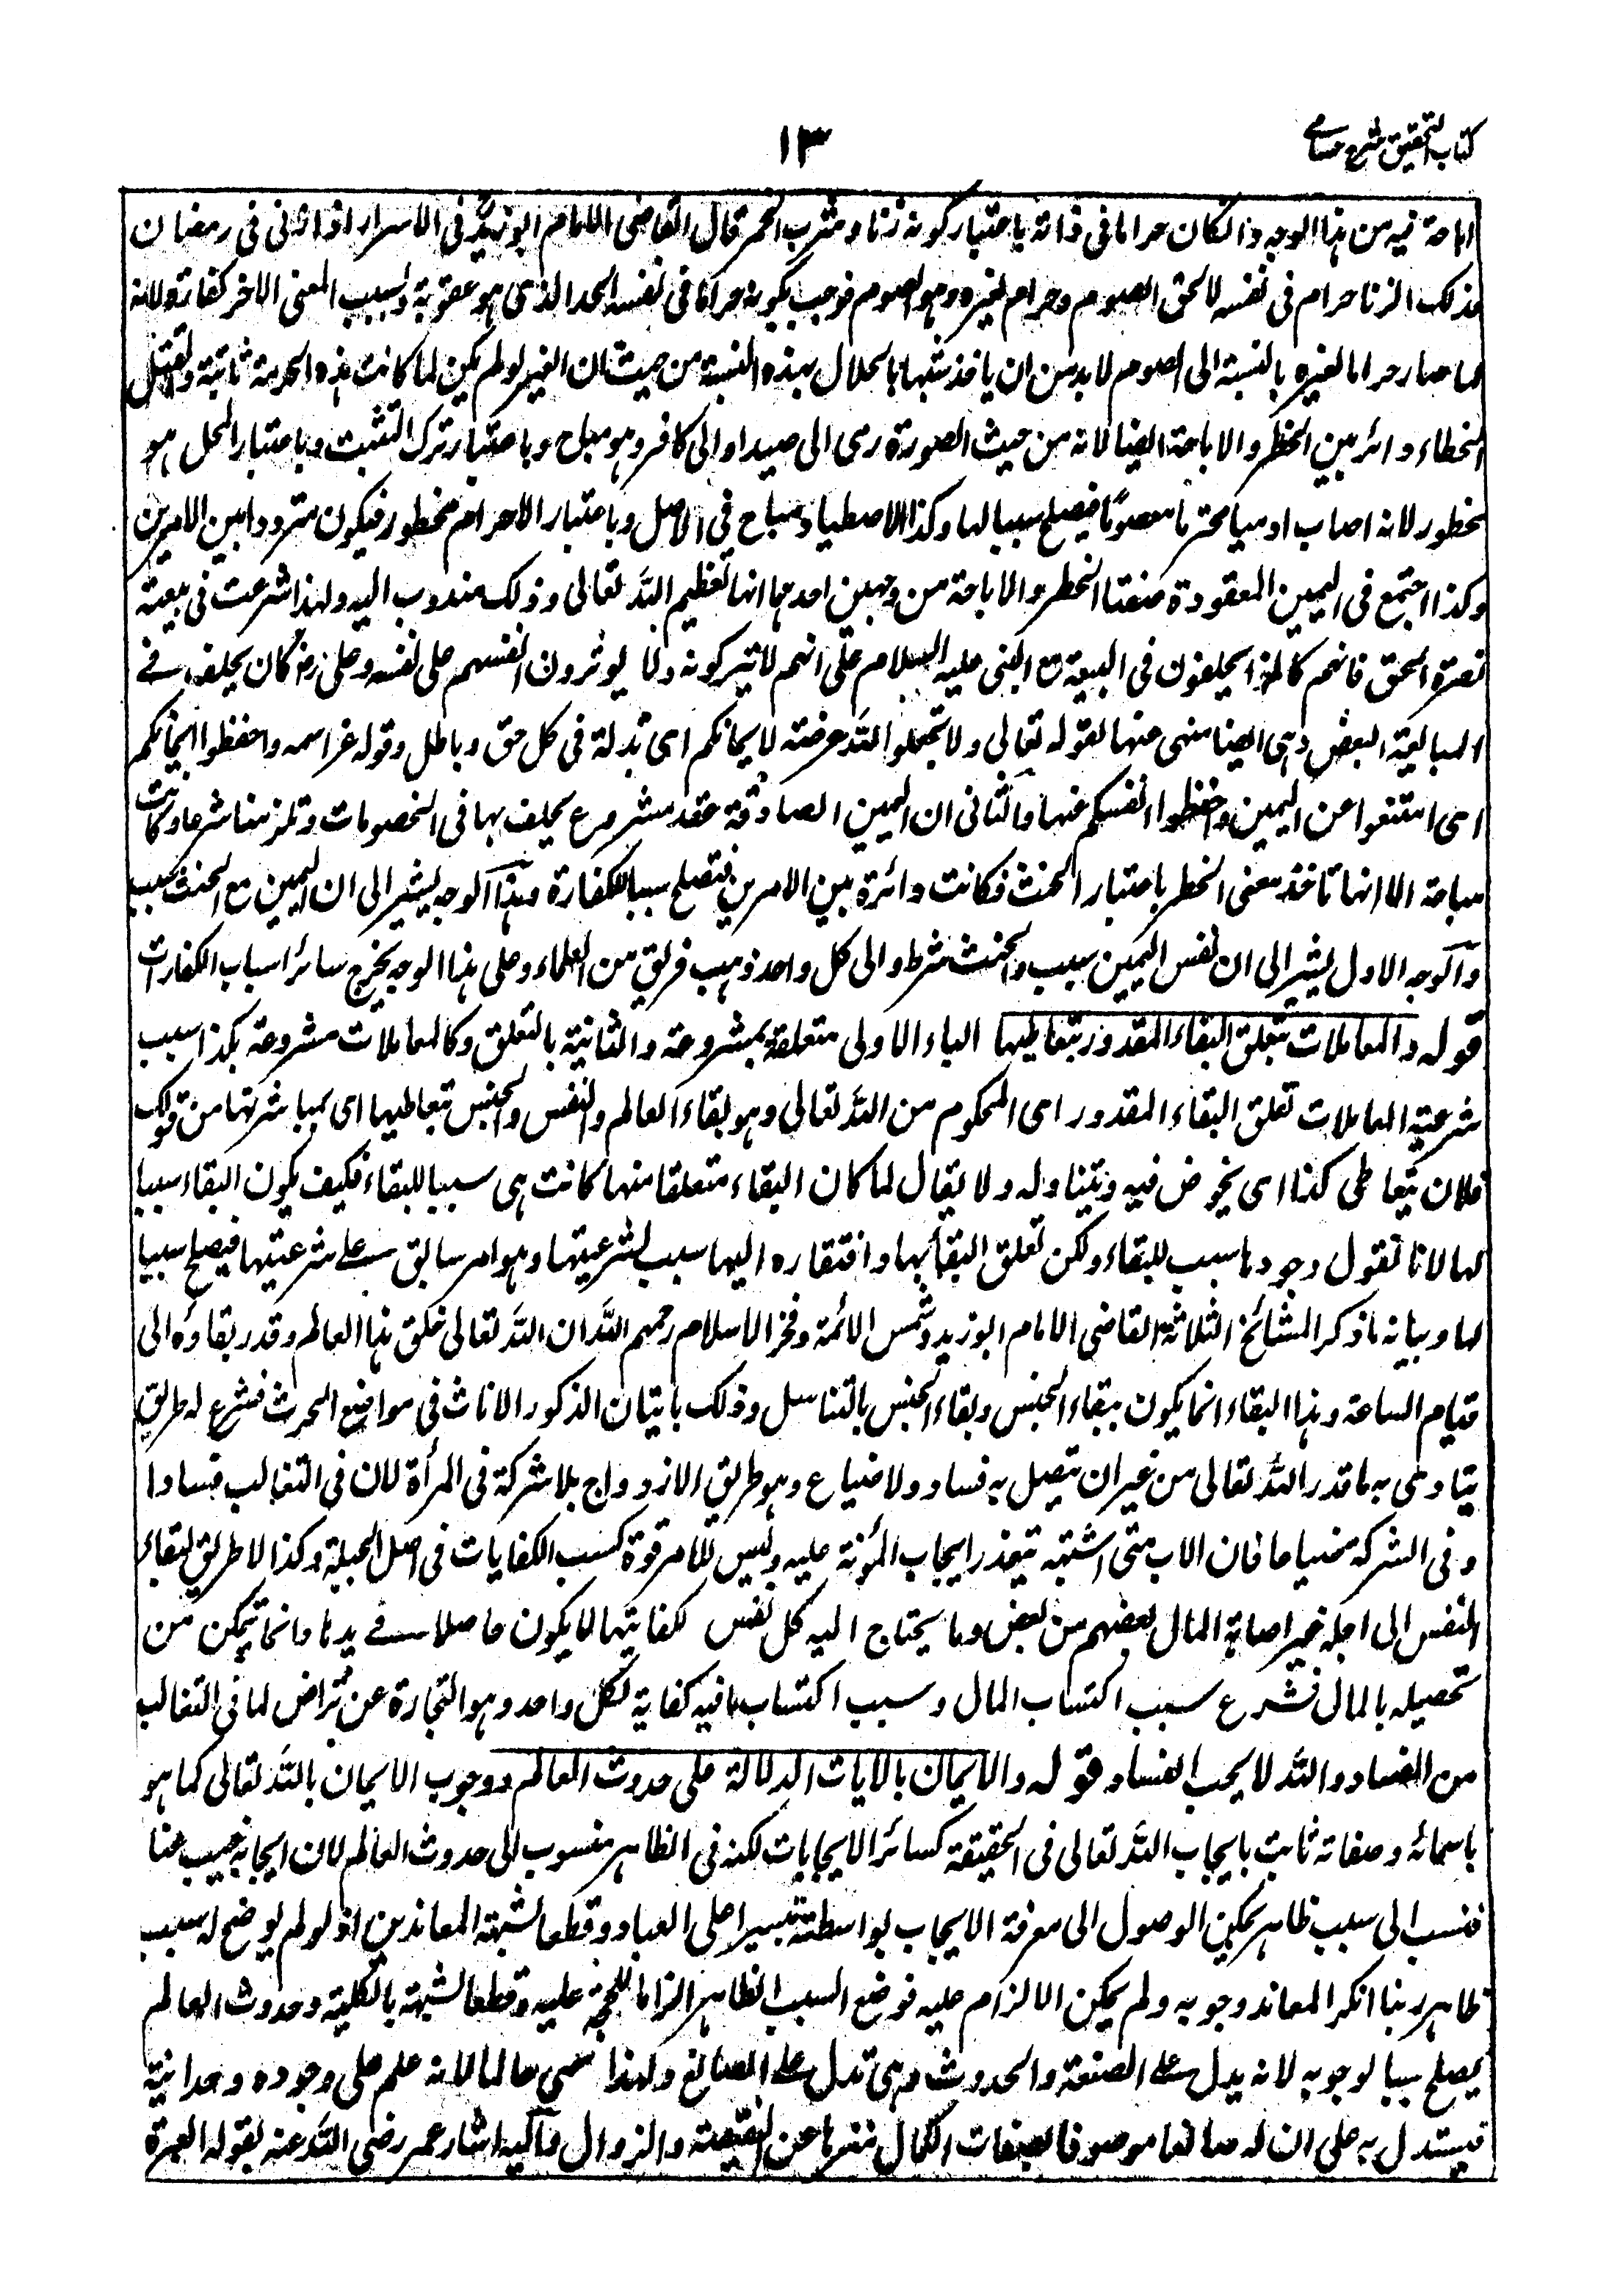 كتاب التحقيق شرح حسامي
١٣
اباحة فيه من هذا الوجه وان كان حراما فى ذاته باعتبار كونه زنا وشرب الخمر قال القاضى الامام ابو زيد فى الاسرار اذا زنى فى رمضان
فذلك الزنا حرام فى نفسه لا لحق الصوم وحرام لغيره وهو الصوم فوجب بكونه حراما فى نفسه الحد الذى هو عقوبة وبسبب المعنى الاخر كفارة ولانه
لما صار حراما لغيره بالنسبة الى الصوم لا بد من ان ياخذ شبها بالحلال بهذه النسبة من حيث ان الغير لو لم يكن لما كانت هذه الحرمة ثابتة والقتل
الخطاء دائر بين الحظر والاباحة ايضا لانه من حيث الصورة رمى الى صيد او الى كافر وهو مباح وباعتبار ترك التثبت وباعتبار المحل هو
محظور لانه اصاب ادميا محترما معصوما فيصلح سببا لها وكذا الاصطياد مباح فى الاصل وباعتبار الاحرام محظور فيكون مترددا بين الامرين
وكذا اجتمع فى اليمين المعقودة صفتا الحظر والاباحة من وجهين احدهما انها تعظيم الله تعالى وذلك مندوب اليه ولهذا شرعت فى بيعة
نصرة الحق فانهم كانوا يحلفون فى البيعة مع النبى عليه السلام على انهم لا يتركونه ولا يوثرون انفسهم على نفسه وعلى رض كان يحلف فى
المبايعة البعض وهى ايضا منهى عنها لقوله تعالى ولا تجعلوا الله عرضة لايمانكم اى بذلة فى كل حق وباطل وقوله عز اسمه واحفظوا ايمانكم
اى امتنعوا عن اليمين واحفظوا انفسكم عنها والثانى ان اليمين الصادقة عقد مشروع يحلف بها فى الخصومات وتلزمنا شرعا وكانت
مباحة الا انها تاخذ معنى الحظر باعتبار الحنث فكانت دائرة بين الامرين فتصلح سببا للكفارة وهذا الوجه يشير الى ان اليمين مع الحنث سبب
والوجه الاول يشير الى ان نفس اليمين سبب والحنث شرط والى كل واحد ذهب فريق من العلماء وعلى هذا الوجه يخرج سائر اسباب الكفارات
قوله والمعاملات بتعلق البقاء المقدور بتعاطيها الباء الاولى متعلقة بمشروعة والثانية بالتعلق وكالمعاملات مشروعة بكذا سبب
شرعية المعاملات تعلق البقاء المقدور اى المحكوم من الله تعالى وهو بقاء العالم والنفس والجنس بتعاطيها اى بمباشرتها من قولك
فلان يتعاطى كذا اى يخوض فيه ويتناوله ولا يقال لما كان البقاء متعلقا منها كانت هى سببا للبقاء فكيف يكون البقاء سببا
لها لانا نقول وجودها سبب للبقاء ولكن تعلق البقاء بها وافتقاره اليها سبب لشرعيتها وهو امر سابق على شرعيتها فيصلح سببا
لها وبيانه ما ذكر المشائخ الثلاثة القاضى الامام ابو زيد وشمس الائمة وفخر الاسلام رحمهم الله ان الله تعالى خلق هذا العالم وقدر بقاؤه الى
قيام الساعة وهذا البقاء انما يكون ببقاء الجنس وبقاء الجنس بالتناسل وذلك باتيان الذكور الاناث فى مواضع الحرث فشرع له طريق
يتادى به ما قدر الله تعالى من غير ان يتصل به فساد ولا ضياع وهو طريق الازدواج بلا شركة فى المرأة لان فى التغالب فسادا
وفى الشركة ضياعا فان الاب متى اشتبه يتعذر ايجاب المؤنة عليه وليس للام قوة كسب الكفايات فى اصل الجبلة وكذا لا طريق لبقاء
النفس الى اجله غير اصابة المال بعضهم من بعض وما يحتاج اليه كل نفس لكفايتها لا يكون حاصلا فى يدها وانما يتمكن من
تحصيله بالمال فشرع سبب اكتساب المال وسبب اكتساب ما فيه كفاية لكل واحد وهو التجارة عن تراض لما فى التغالب
من الفساد والله لا يحب الفساد قوله والايمان بالايات الدلالة على حدوث العالم ووجوب الايمان بالله تعالى كما هو
باسمائه وصفاته ثابت بايجاب الله تعالى فى الحقيقة كسائر الايجابات لكنه فى الظاهر منسوب الى حدوث العالم لان ايجابه غيب عنا
فنسب الى سبب ظاهر يمكن الوصول الى معرفة الايجاب بواسطته تيسيرا على العباد وقطعا لشبهة المعاندين اذ لو لم يوضح له سبب
ظاهر ربما انكر المعاند وجوبه ولم يمكن الالزام عليه فوضع السبب الظاهر الزاما للحجة عليه وقطعا لشبهته بالكلية وحدوث العالم
يصلح سببا لوجوبه لانه يدل على الصنعة والحدوث وهى تدل على الصانع ولهذا سمى عالما لانه علم على وجوده وحدانية
فيستدل به على ان له صانعا موصوفا بصفات الكمال منزها عن النقيصة والزوال واليه اشار عمر رضى الله عنه بقوله البعرة